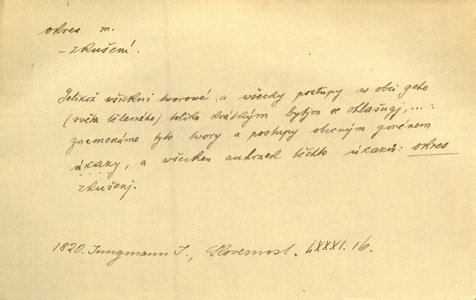 okres m.
- zkušení.
Jelikož všickni tvorové a wšecky postupy w obci geho
(světa tělesného) toliko krátkým bytjm se ohlašugj,...:
znamenáme tyto twory a postupy obecným gménem
úkazy, a wšecken auhrnek těchto úkazů: okres
zkušenj.
1820. Jungmann J., Slovesnost. LXXXI. 16.